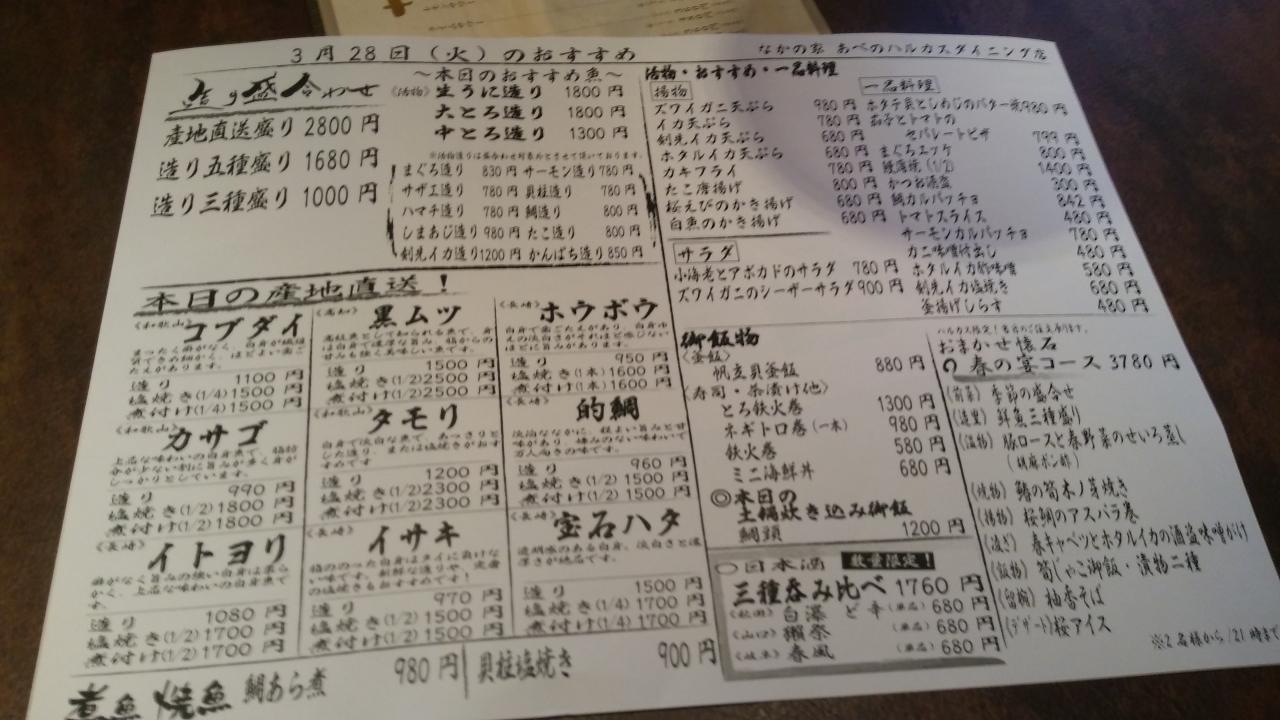 3月28日（火）のおすすめ
なかの家 あべのハルカスダイニング店
造り盛合わせ
産地直送盛り 2800円
造り五種盛り 1680円
造り三種盛り 1000円
～本日のおすすめ魚～
〈活物〉生うに造り 1800円
大とろ造り 1800円
中とろ造り 1300円
※活物造りは盛合わせ対象外とさせて頂いております。
まぐろ造り 830円 サーモン造り 780円
サザエ造り 780円 貝柱造り 780円
ハマチ造り 780円 鯛造り 800円
しまあじ造り 980円 たこ造り 800円
剣先イカ造り 1200円 かんぱち造り 850円
本日の産地直送！
〈和歌山〉コブダイ
造り 1100円
塩焼き(1/4) 1500円
煮付け(1/4) 1500円
〈高知〉黒ムツ
造り 1500円
塩焼き(1/2) 2500円
煮付け(1/2) 2500円
〈長崎〉ホウボウ
造り 950円
塩焼き(1本) 1600円
煮付け(1本) 1600円
〈和歌山〉カサゴ
造り 990円
塩焼き(1/2) 1800円
煮付け(1/2) 1800円
〈和歌山〉タモリ
造り 1200円
塩焼き(1/2) 2300円
煮付け(1/2) 2300円
〈長崎〉的鯛
造り 960円
塩焼き(1/2) 1500円
煮付け(1/2) 1500円
〈長崎〉イトヨリ
造り 1080円
塩焼き(1/2) 1700円
煮付け(1/2) 1700円
〈長崎〉イサキ
造り 970円
塩焼き(1/2) 1500円
煮付け(1/2) 1500円
〈長崎〉宝石ハタ
造り 1500円
塩焼き(1/4) 1700円
煮付け(1/4) 1700円
煮魚 焼魚 鯛あら煮 980円
貝柱塩焼き 900円
活物・おすすめ・一品料理
揚物
ズワイガニ天ぷら 980円
イカ天ぷら 780円
剣先イカ天ぷら 680円
ホタルイカ天ぷら 680円
カキフライ 780円
たこ唐揚げ 800円
桜えびのかき揚げ 680円
白魚のかき揚げ 680円
サラダ
小海老とアボカドのサラダ 780円
ズワイガニのシーザーサラダ 900円
一品料理
ホタテ貝としめじのバター焼 980円
茄子とトマトの
セパレートピザ 799円
まぐろユッケ 800円
(1/2) 1400円
かつお酒盗 300円
鯛カルパッチョ 842円
トマトスライス 480円
サーモンカルパッチョ 780円
カニ味噌付出し 480円
ホタルイカ酢味噌 580円
剣先イカ塩焼き 680円
釜揚げしらす 480円
御飯物
〈釜飯〉
帆立貝釜飯 880円
〈寿司・茶漬け他〉
とろ鉄火巻 1300円
ネギトロ巻(一本) 980円
鉄火巻 580円
ミニ海鮮丼 680円
◎本日の
土鍋炊き込み御飯
鯛頭 1200円
〇日本酒 数量限定！
三種呑み比べ 1760円
〈秋田〉白瀑 ど辛 (単品) 680円
〈山口〉獺祭 (単品) 680円
〈岐阜〉春風 (単品) 680円
おまかせ懐石
春の宴コース 3780円
(前菜) 季節の盛合せ
(造里) 鮮魚三種盛り
(温物) 豚ロースと春野菜のせいろ蒸し
(胡麻ポン酢)
(焼物) 鰆の筍木ノ芽焼き
(揚物) 桜鯛のアスパラ巻
(凌ぎ) 春キャベツとホタルイカの酒盗味噌がけ
(飯物) 筍じゃこ御飯・漬物二種
(留椀) 柚香そば
(デザート) 桜アイス
※2名様から/21時まで